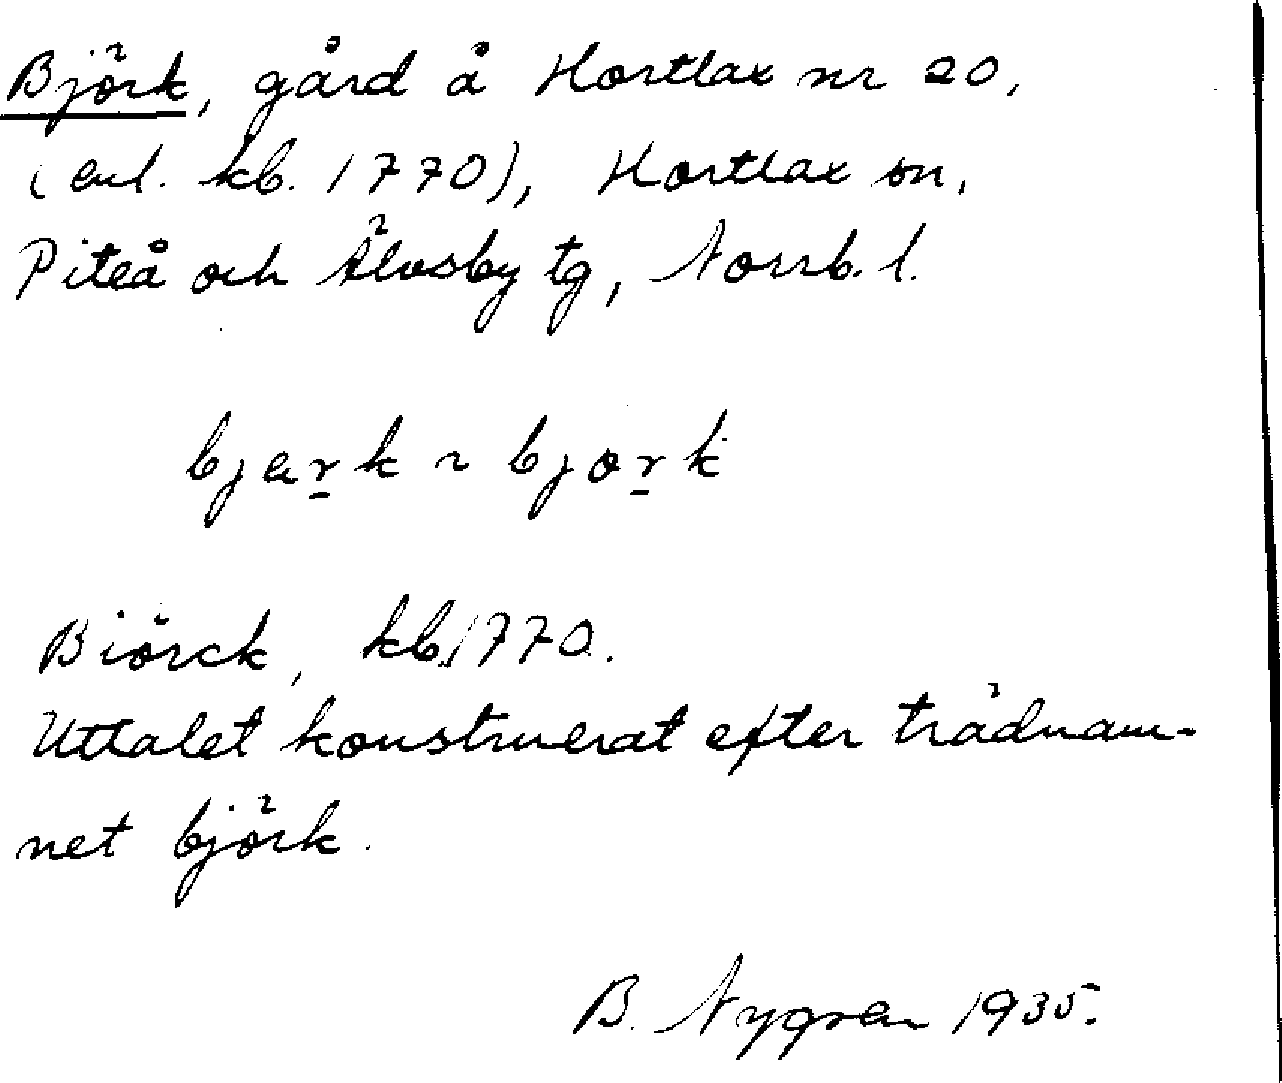 Björk, gård å Hortlax nr 20,
(enl. kb. 1770), Hortlax sn,
Piteå och Älvsby tg, Norrb. l.
bjærk ~ bjork
Biörck, kb. 1770.
Uttalet konstruerat efter trädnam-
net björk.
B. Nygren 1935.